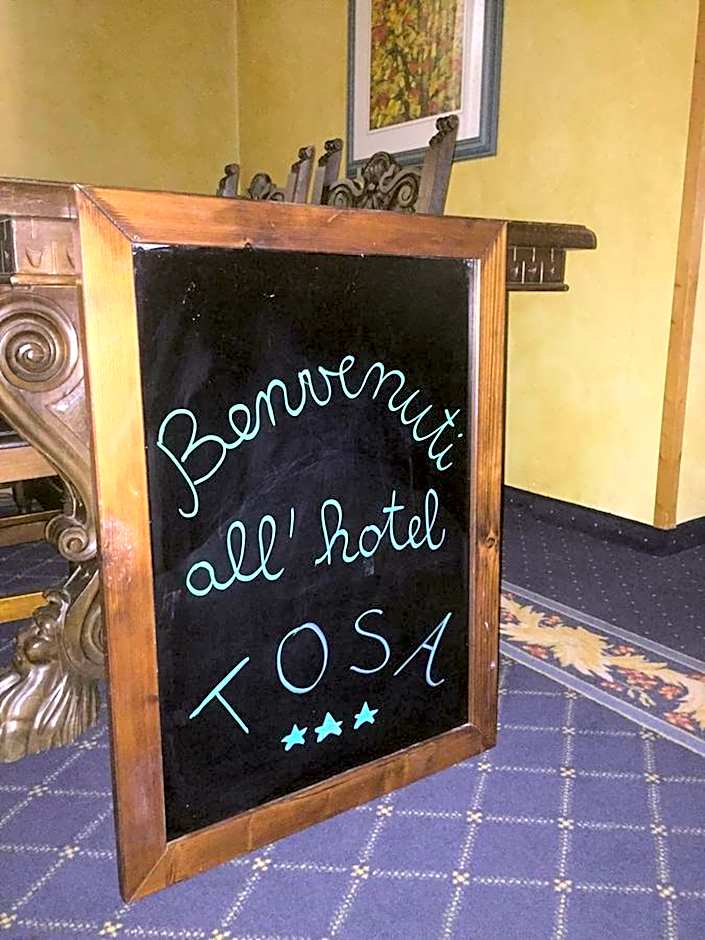 Benvenuti
all'hotel
TOSA
★★★